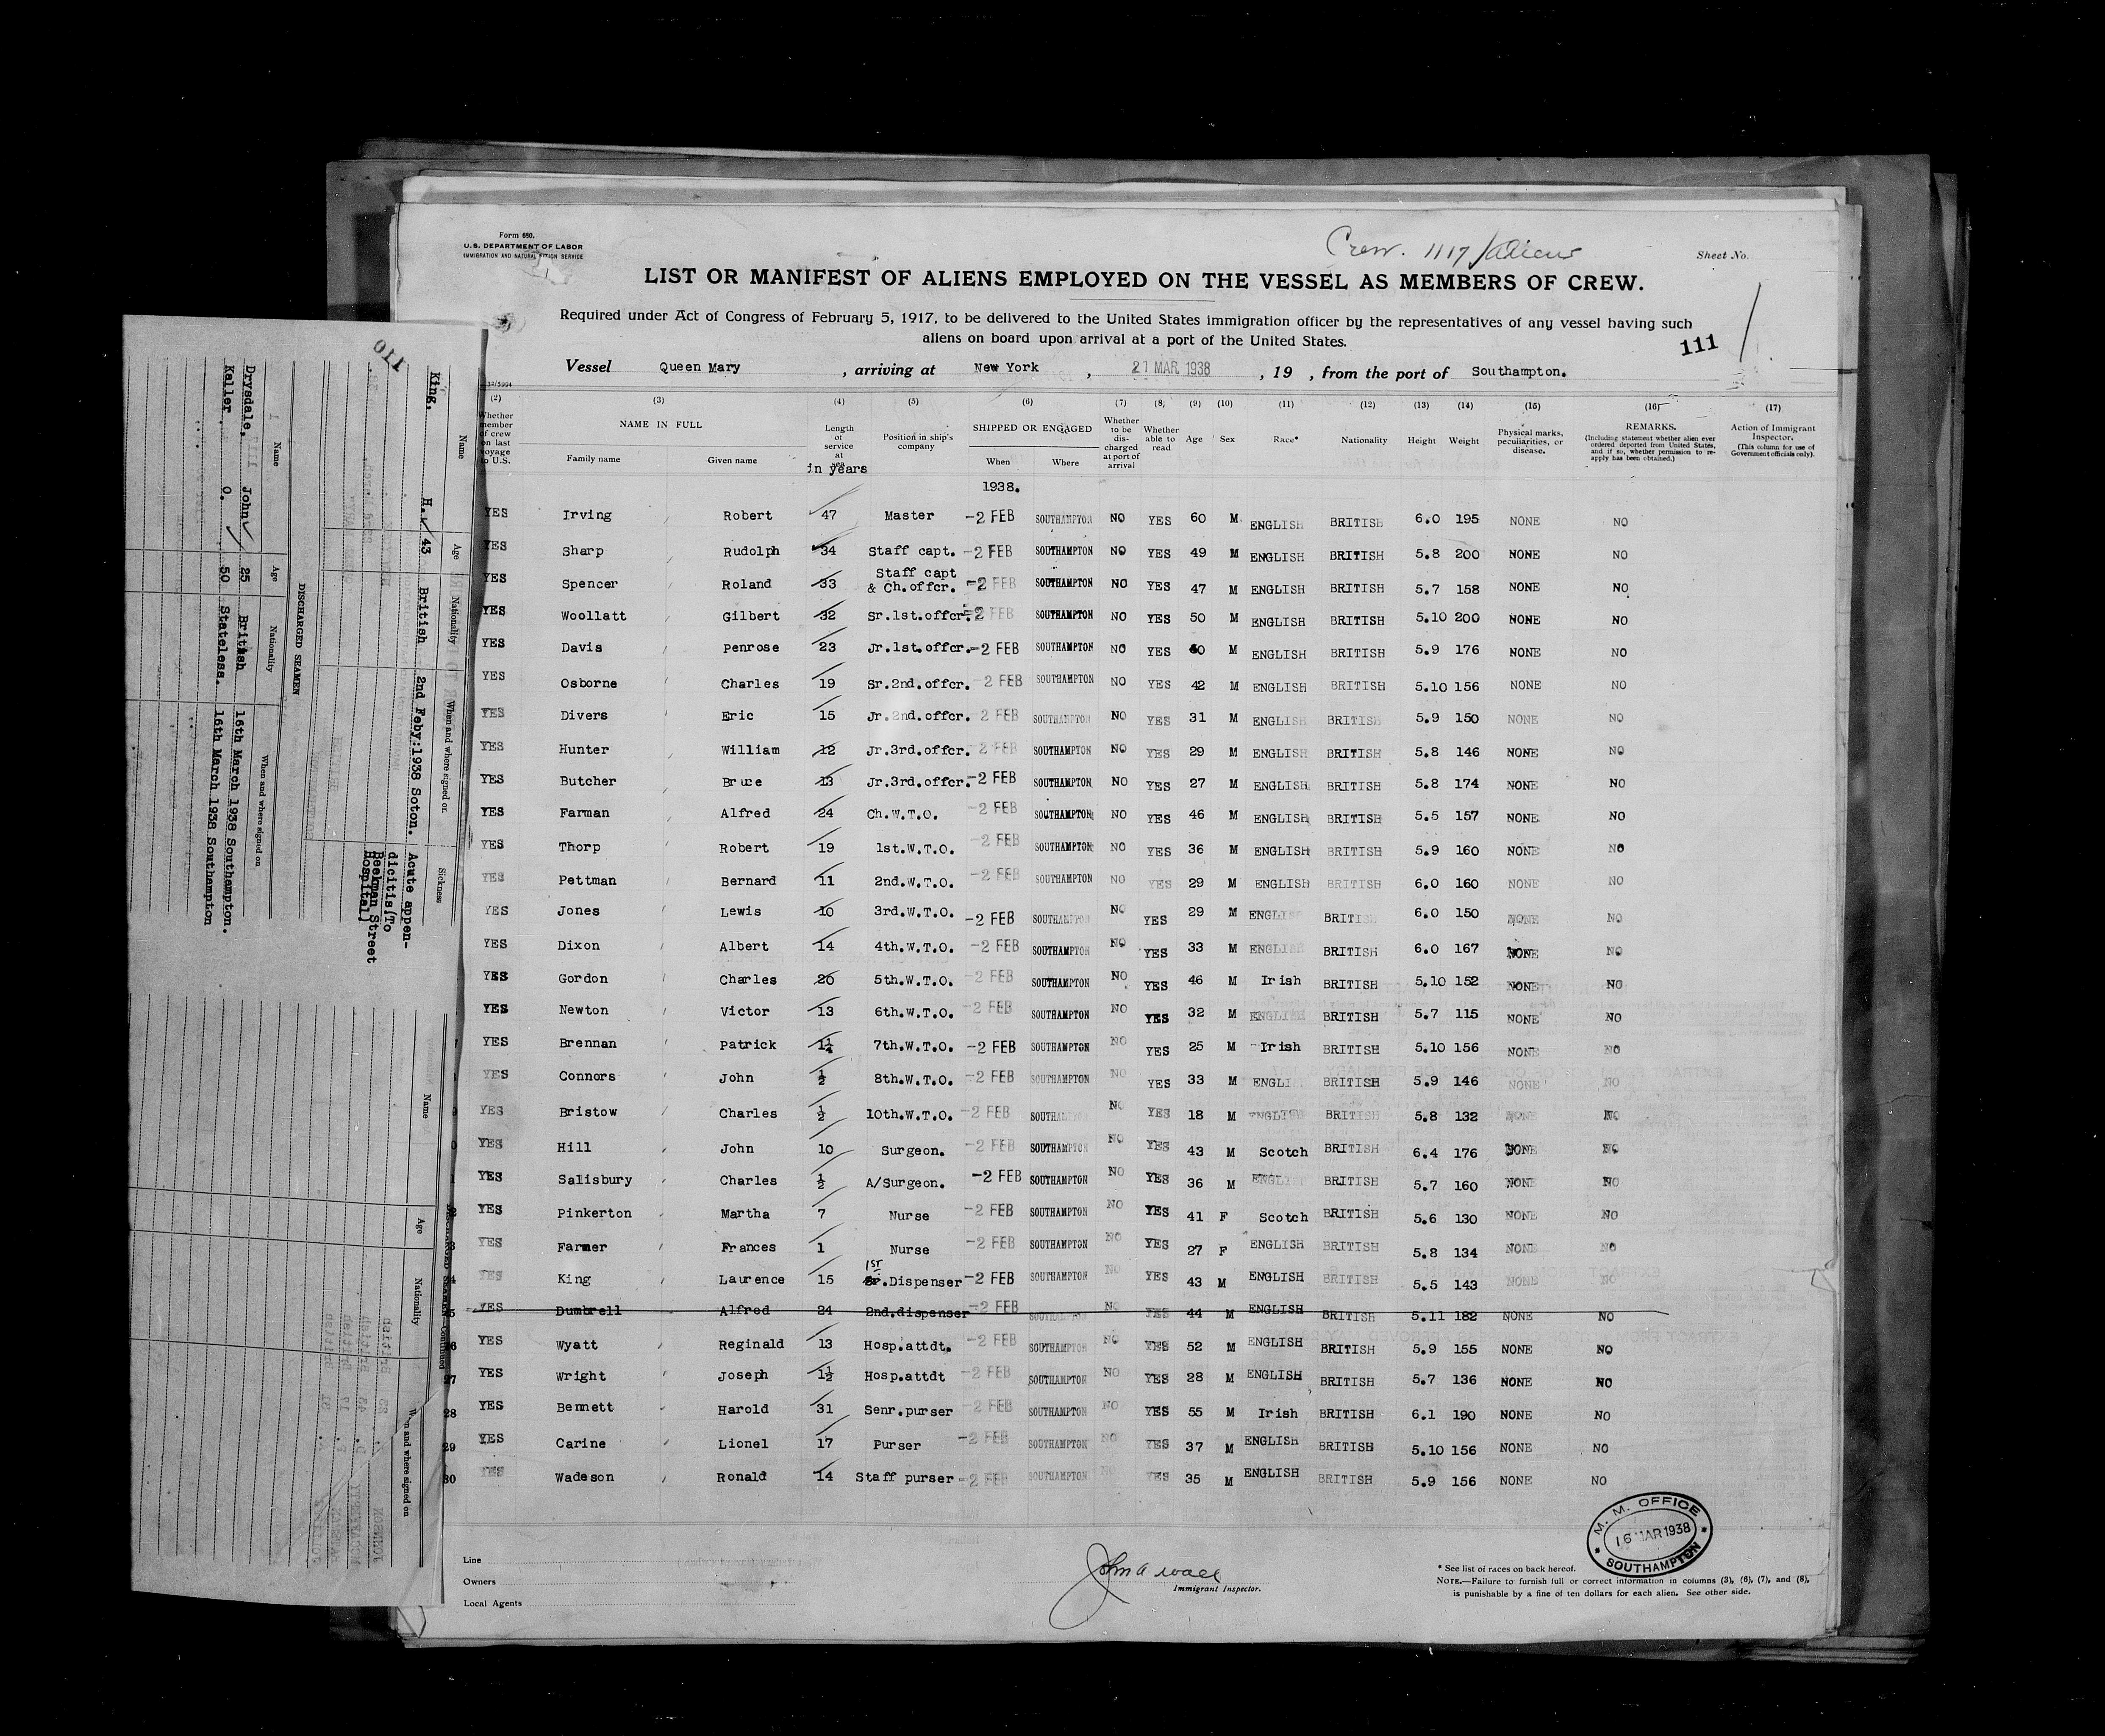 Form 680.
U.S. DEPARTMENT OF LABOR
IMMIGRATION AND NATURALIZATION SERVICE
Crew. 1117/aliens
Sheet No.
LIST OR MANIFEST OF ALIENS EMPLOYED ON THE VESSEL AS MEMBERS OF CREW.
Required under Act of Congress of February 5, 1917, to be delivered to the United States immigration officer by the representatives of any vessel having such
aliens on board upon arrival at a port of the United States.
111
Vessel Queen Mary, arriving at New York, 21 MAR 1938, 19 , from the port of Southampton.
(2) (3) (4) (5) (6) (7) (8) (9) (10) (11) (12) (13) (14) (15) (16) (17)
Whether member of crew on last voyage to U.S. NAME IN FULL Family name Given name Length of service at sea in years Position in ship's company SHIPPED OR ENGAGED When Where Whether to be discharged at port of arrival Whether able to read Age Sex Race* Nationality Height Weight Physical marks, peculiarities, or disease. REMARKS. (Including statement whether alien ever ordered deported from United States, and if so, whether permission to reapply has been obtained.) Action of Immigrant Inspector. (This column for use of Government officials only).
1938.
YES Irving Robert 47 Master -2 FEB SOUTHAMPTON NO YES 60 M ENGLISH BRITISH 6.0 195 NONE NO
YES Sharp Rudolph 34 Staff capt. -2 FEB SOUTHAMPTON NO YES 49 M ENGLISH BRITISH 5.8 200 NONE NO
YES Spencer Roland 33 Staff capt & Ch.offcr. -2 FEB SOUTHAMPTON NO YES 47 M ENGLISH BRITISH 5.7 158 NONE NO
YES Woollatt Gilbert 32 Sr.1st.offcr. -2 FEB SOUTHAMPTON NO YES 50 M ENGLISH BRITISH 5.10 200 NONE NO
YES Davis Penrose 23 Jr.1st.offcr. -2 FEB SOUTHAMPTON NO YES 40 M ENGLISH BRITISH 5.9 176 NONE NO
YES Osborne Charles 19 Sr.2nd.offcr. 2 FEB SOUTHAMPTON NO YES 42 M ENGLISH BRITISH 5.10 156 NONE NO
YES Divers Eric 15 Jr.2nd.offcr. 2 FEB SOUTHAMPTON NO YES 31 M ENGLISH BRITISH 5.9 150 NONE NO
YES Hunter William 12 Jr.3rd.offcr. 2 FEB SOUTHAMPTON NO YES 29 M ENGLISH BRITISH 5.8 146 NONE NO
YES Butcher Bruce 13 Jr.3rd.offcr. -2 FEB SOUTHAMPTON NO YES 27 M ENGLISH BRITISH 5.8 174 NONE NO
YES Farman Alfred 24 Ch.W.T.O. -2 FEB SOUTHAMPTON NO YES 46 M ENGLISH BRITISH 5.5 157 NONE NO
YES Thorp Robert 19 1st.W.T.O. -2 FEB SOUTHAMPTON NO YES 36 M ENGLISH BRITISH 5.9 160 NONE NO
YES Pettman Bernard 11 2nd.W.T.O. -2 FEB SOUTHAMPTON NO YES 29 M ENGLISH BRITISH 6.0 160 NONE NO
YES Jones Lewis 10 3rd.W.T.O. -2 FEB SOUTHAMPTON NO YES 29 M ENGLISH BRITISH 6.0 150 NONE NO
YES Dixon Albert 14 4th.W.T.O. -2 FEB SOUTHAMPTON NO YES 33 M ENGLISH BRITISH 6.0 167 NONE NO
YES Gordon Charles 20 5th.W.T.O. -2 FEB SOUTHAMPTON NO YES 46 M Irish BRITISH 5.10 152 NONE NO
YES Newton Victor 13 6th.W.T.O. -2 FEB SOUTHAMPTON NO YES 32 M ENGLISH BRITISH 5.7 115 NONE NO
YES Brennan Patrick 1¼ 7th.W.T.O. -2 FEB SOUTHAMPTON NO YES 25 M Irish BRITISH 5.10 156 NONE NO
YES Connors John ½ 8th.W.T.O. -2 FEB SOUTHAMPTON NO YES 33 M ENGLISH BRITISH 5.9 146 NONE NO
YES Bristow Charles ½ 10th.W.T.O. -2 FEB SOUTHAMPTON NO YES 18 M ENGLISH BRITISH 5.8 132 NONE NO
YES Hill John 10 Surgeon. -2 FEB SOUTHAMPTON NO YES 43 M Scotch BRITISH 6.4 176 NONE NO
YES Salisbury Charles ½ A/Surgeon. -2 FEB SOUTHAMPTON NO YES 36 M ENGLISH BRITISH 5.7 160 NONE NO
YES Pinkerton Martha 7 Nurse -2 FEB SOUTHAMPTON NO YES 41 F Scotch BRITISH 5.6 130 NONE NO
YES Farmer Frances 1 Nurse -2 FEB SOUTHAMPTON NO YES 27 F ENGLISH BRITISH 5.8 134 NONE NO
YES King Laurence 15 1ST Sr.Dispenser -2 FEB SOUTHAMPTON NO YES 43 M ENGLISH BRITISH 5.5 143 NONE NO
YES Dumbrell Alfred 24 2nd.dispenser -2 FEB SOUTHAMPTON NO YES 44 M ENGLISH BRITISH 5.11 182 NONE NO
26 YES Wyatt Reginald 13 Hosp.attdt. -2 FEB SOUTHAMPTON NO YES 52 M ENGLISH BRITISH 5.9 155 NONE NO
27 YES Wright Joseph 1½ Hosp.attdt -2 FEB SOUTHAMPTON NO YES 28 M ENGLISH BRITISH 5.7 136 NONE NO
28 YES Bennett Harold 31 Senr.purser -2 FEB SOUTHAMPTON NO YES 55 M Irish BRITISH 6.1 190 NONE NO
29 YES Carine Lionel 17 Purser -2 FEB SOUTHAMPTON NO YES 37 M ENGLISH BRITISH 5.10 156 NONE NO
30 YES Wadeson Ronald 14 Staff purser -2 FEB SOUTHAMPTON YES 35 M ENGLISH BRITISH 5.9 156 NONE NO
M. M. OFFICE
16 MAR 1938
SOUTHAMPTON
Line
Owners
Local Agents
John A Wall
Immigrant Inspector.
* See list of races on back hereof.
NOTE.—Failure to furnish full or correct information in columns (3), (6), (7), and (8),
is punishable by a fine of ten dollars for each alien. See other side.
110
Name Age Nationality When and where signed on. Sickness
King, H. 43 British 2nd Feby:1938 Soton. Acute appen-
dicitis(To
Beekman Street
Hospital)
DISCHARGED SEAMEN
Name Age Nationality When and where signed on
Drysdale, John 25 British 16th March 1938 Southampton.
Keller O. 50 Stateless. 16th March 1938 Southampton
Name Age Nationality When and where signed on